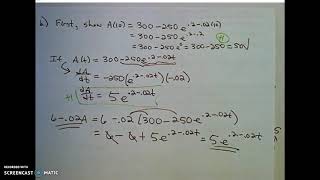 b) First, show A(10) = 300-250e^.2-.02(10)
= 300-250e^.2-.2
= 300-250e^0 = 300-250 = 50√
+1
If A(t) = 300-250e^.2-.02t
dA/dt = -250(e^.2-.02t)(-.02)
+1 dA/dt = 5e^.2-.02t
6-.02A = 6-.02(300-250e^.2-.02t)
= 6-6+5e^.2-.02t = 5e^.2-.02t
RECORDED WITH
SCREENCAST-O-MATIC